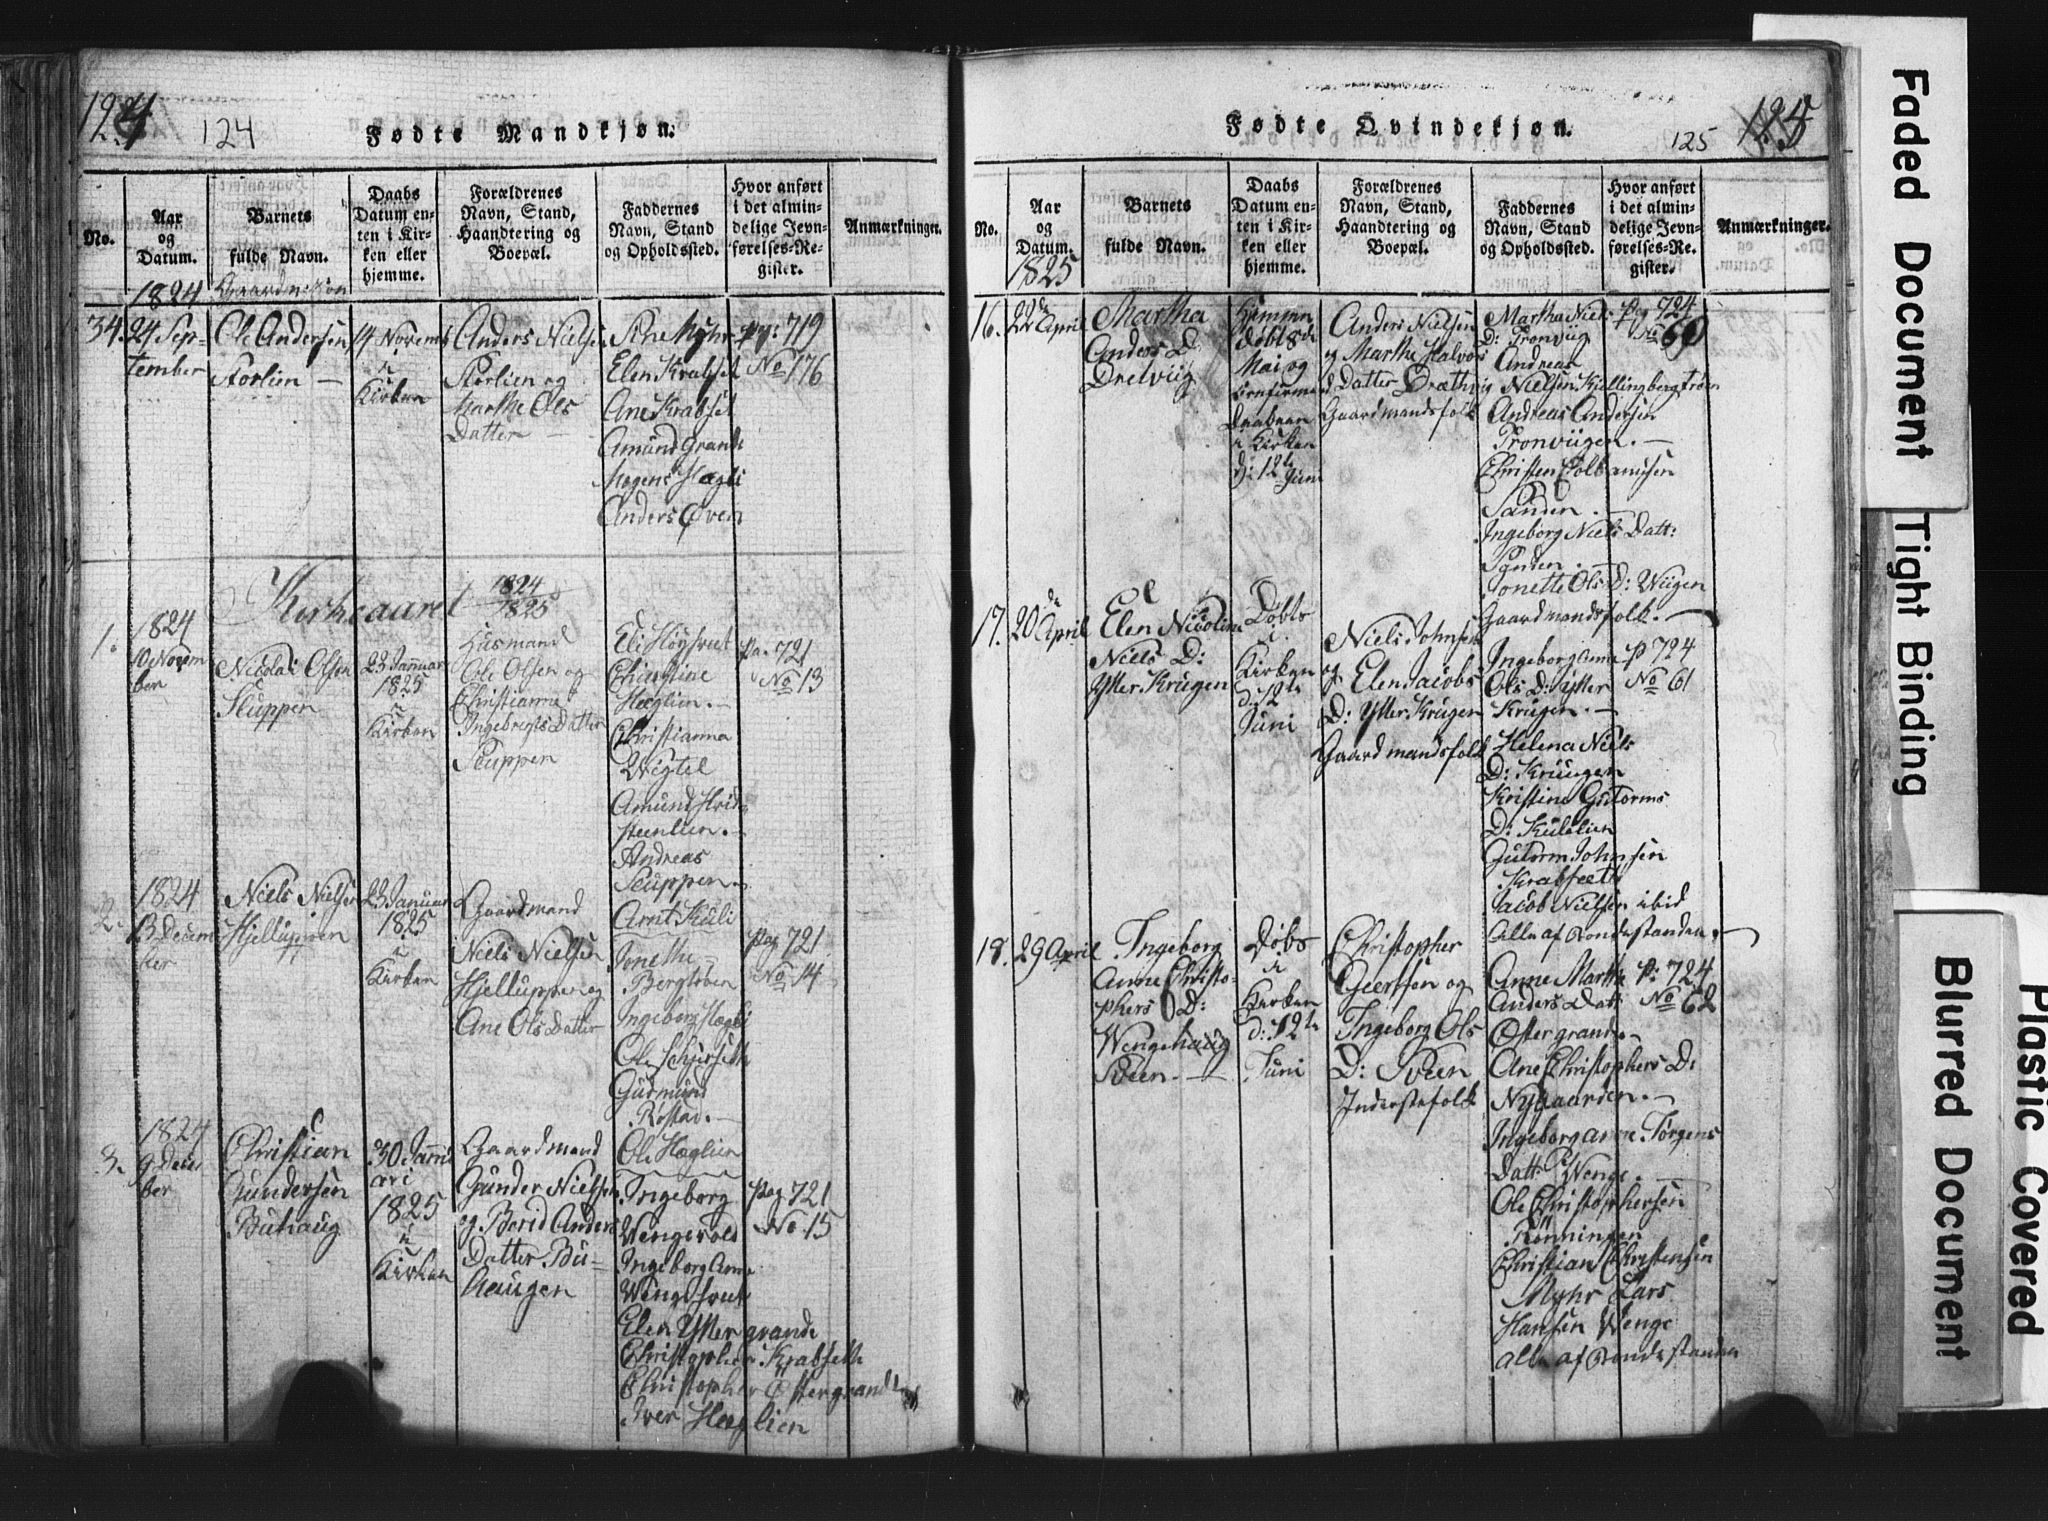 124
124
Fødte Mandkjøn.
No.
Aar og Datum.
Barnets fulde Navn.
Daabs Datum enten i Kirken eller hjemme.
Forældrenes Navn, Stand, Haandtering og Boepæl.
Faddernes Navn, Stand og Opholdssted.
Hvor anført i det almindelige Jevnførelses-Register.
Anmærkninger.
1824
34. 24 September
Ole Andersen
Storlien —
14 Novemb
i
Kirken
Anders Nielsen
Storlien og
Marthe Ols
Datter —
Sine Myhr
Elen Krabset
Ane Krabset
Amund Grande
Mogens Hægli
Anders Øven
pg: 719
No 176
Kirkeaaret 1824
1825
1.
1824
10 Novem
ber
Nicolai Olsen
Sluppen
23 Januar
1825
i
Kirken
Husmand
Ole Olsen og
Christianna
Ingebregts Datter
Sluppen
Eli
Christine
Hæglien. —
Christianna
Wigtel
Amund
steenlien. —
Andreas
Sluppen.
Arnt Kuli
Pa. 721
No 13
2.
1824
13 Decem
ber
Niels Nielsen
Hjelluppen
23 Januar
1825
i
Kirken
Gaardmand
Niels Nielsen
Hjelluppen og
Ane Ols Datter
Jonethe
Bergtrøen
Ingeborg Hægli
Ole
Gudmund
Røstad. —
Ole Hæglien
Pag 721
No 14
3.
1824
9 Decem
ber
Christian
Gundersen
Buhaug
30 Janu
ari
1825
i
Kirken
Gaardmand
Gunder Nielsen
og Berid Anders
Datter Bu-
haugen
Ingeborg
Wengevold
Ingeborg Anna
Elen Ytter grande
Christopher Krabseth
Christopher Østergrande
Iver Hæglien
Pag 721
No 15
Fødte Qvindekjøn.
125
125
No.
Aar og Datum.
Barnets fulde Navn.
Daabs Datum enten i Kirken eller hjemme.
Forældrenes Navn, Stand, Haandtering og Boepæl.
Faddernes Navn, Stand og Opholdssted.
Hvor anført i det almindelige Jevnførelses-Register.
Anmærkninger.
1825
16. 22de April
Martha
Anders D.
Drelviig
Hjemme
døbt 8de
Mai og
Confirmered
Daaben
i Kirken
d: 12te
Juni
Anders Nielsen
og Marthe Halvors
Datter
Gaardmandsfolk
Martha Niels
D: Tronviig
Andreas
Nielsen Kjellingbergtrøen
Andreas Andersen
Tronviigen. —
Christen Colbanusen
Sanden.
Ingeborg Niels Datt:
Sanden. —
Jonette Ols D: Wiigen
Gaardmandsfolk. —
Pg 724
No 60
17. 20de April
Elen Nicoline
Niels D:
Ytter Krugen
Døbt
i
Kirken
d: 12te
Juni
Niels Johnsen
og
Elen Jacobs
D: Ytter Krugen
Gaardmandsfolk
Ingeborg Anna
Ols D: Ytter
Krugen. —
Helena Niels
D: Kruugen
Kristine Gutorms
D: Kulelien
Gutorm Johnsen
Krabseeth
Jacob Nielsen ibid
alle af Bondestanden. —
P 724
No 61
18. 29 April
Ingeborg
Anne Christo-
phers D:
Wengehaug
Sveen. —
Døbt
i
Kirken
d: 12te
Juni
Christopher
Geertsen og
Ingeborg Ols
D: Sveen
Inderstefolk
Anne Martha
Anders Datt
Østergrande. —
Ane Christophers D:
Nygaarden. —
Ingeborg Anne Jørgens
Datt: Wenge. —
Ole Christophersen
Rønningen
Christian Christensen
Myhr Lars
Hansen Wenge
alle af Bondestanden
P: 724
No 62
Faded Document
Tight Binding
Blurred Document
Plastic Covered